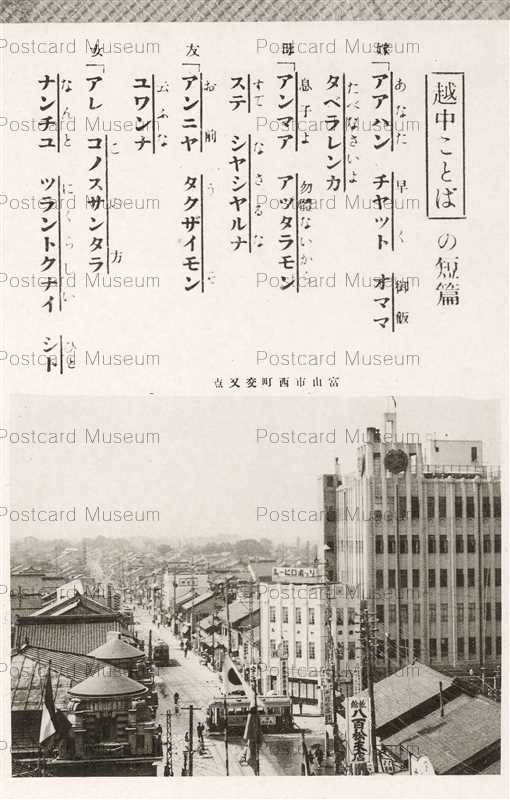 越中ことば の短篇
あなた 早く 御飯
嫁「アアハン チヤット オママ
たべなさいよ
タベラレンカ
息子よ 勿體ないから
母「アンマア アツタラモン
すて なさるな
ステ シヤシヤルナ
お前 うそ
友「アンニヤ タクザイモン
云ふな
ユワンナ
この方
女「アレ コノスサンタラ
なんと にくらしい ひと
ナンチユ ツラントクナイ シト
富山市西町交叉点
八百松支店
Postcard Museum